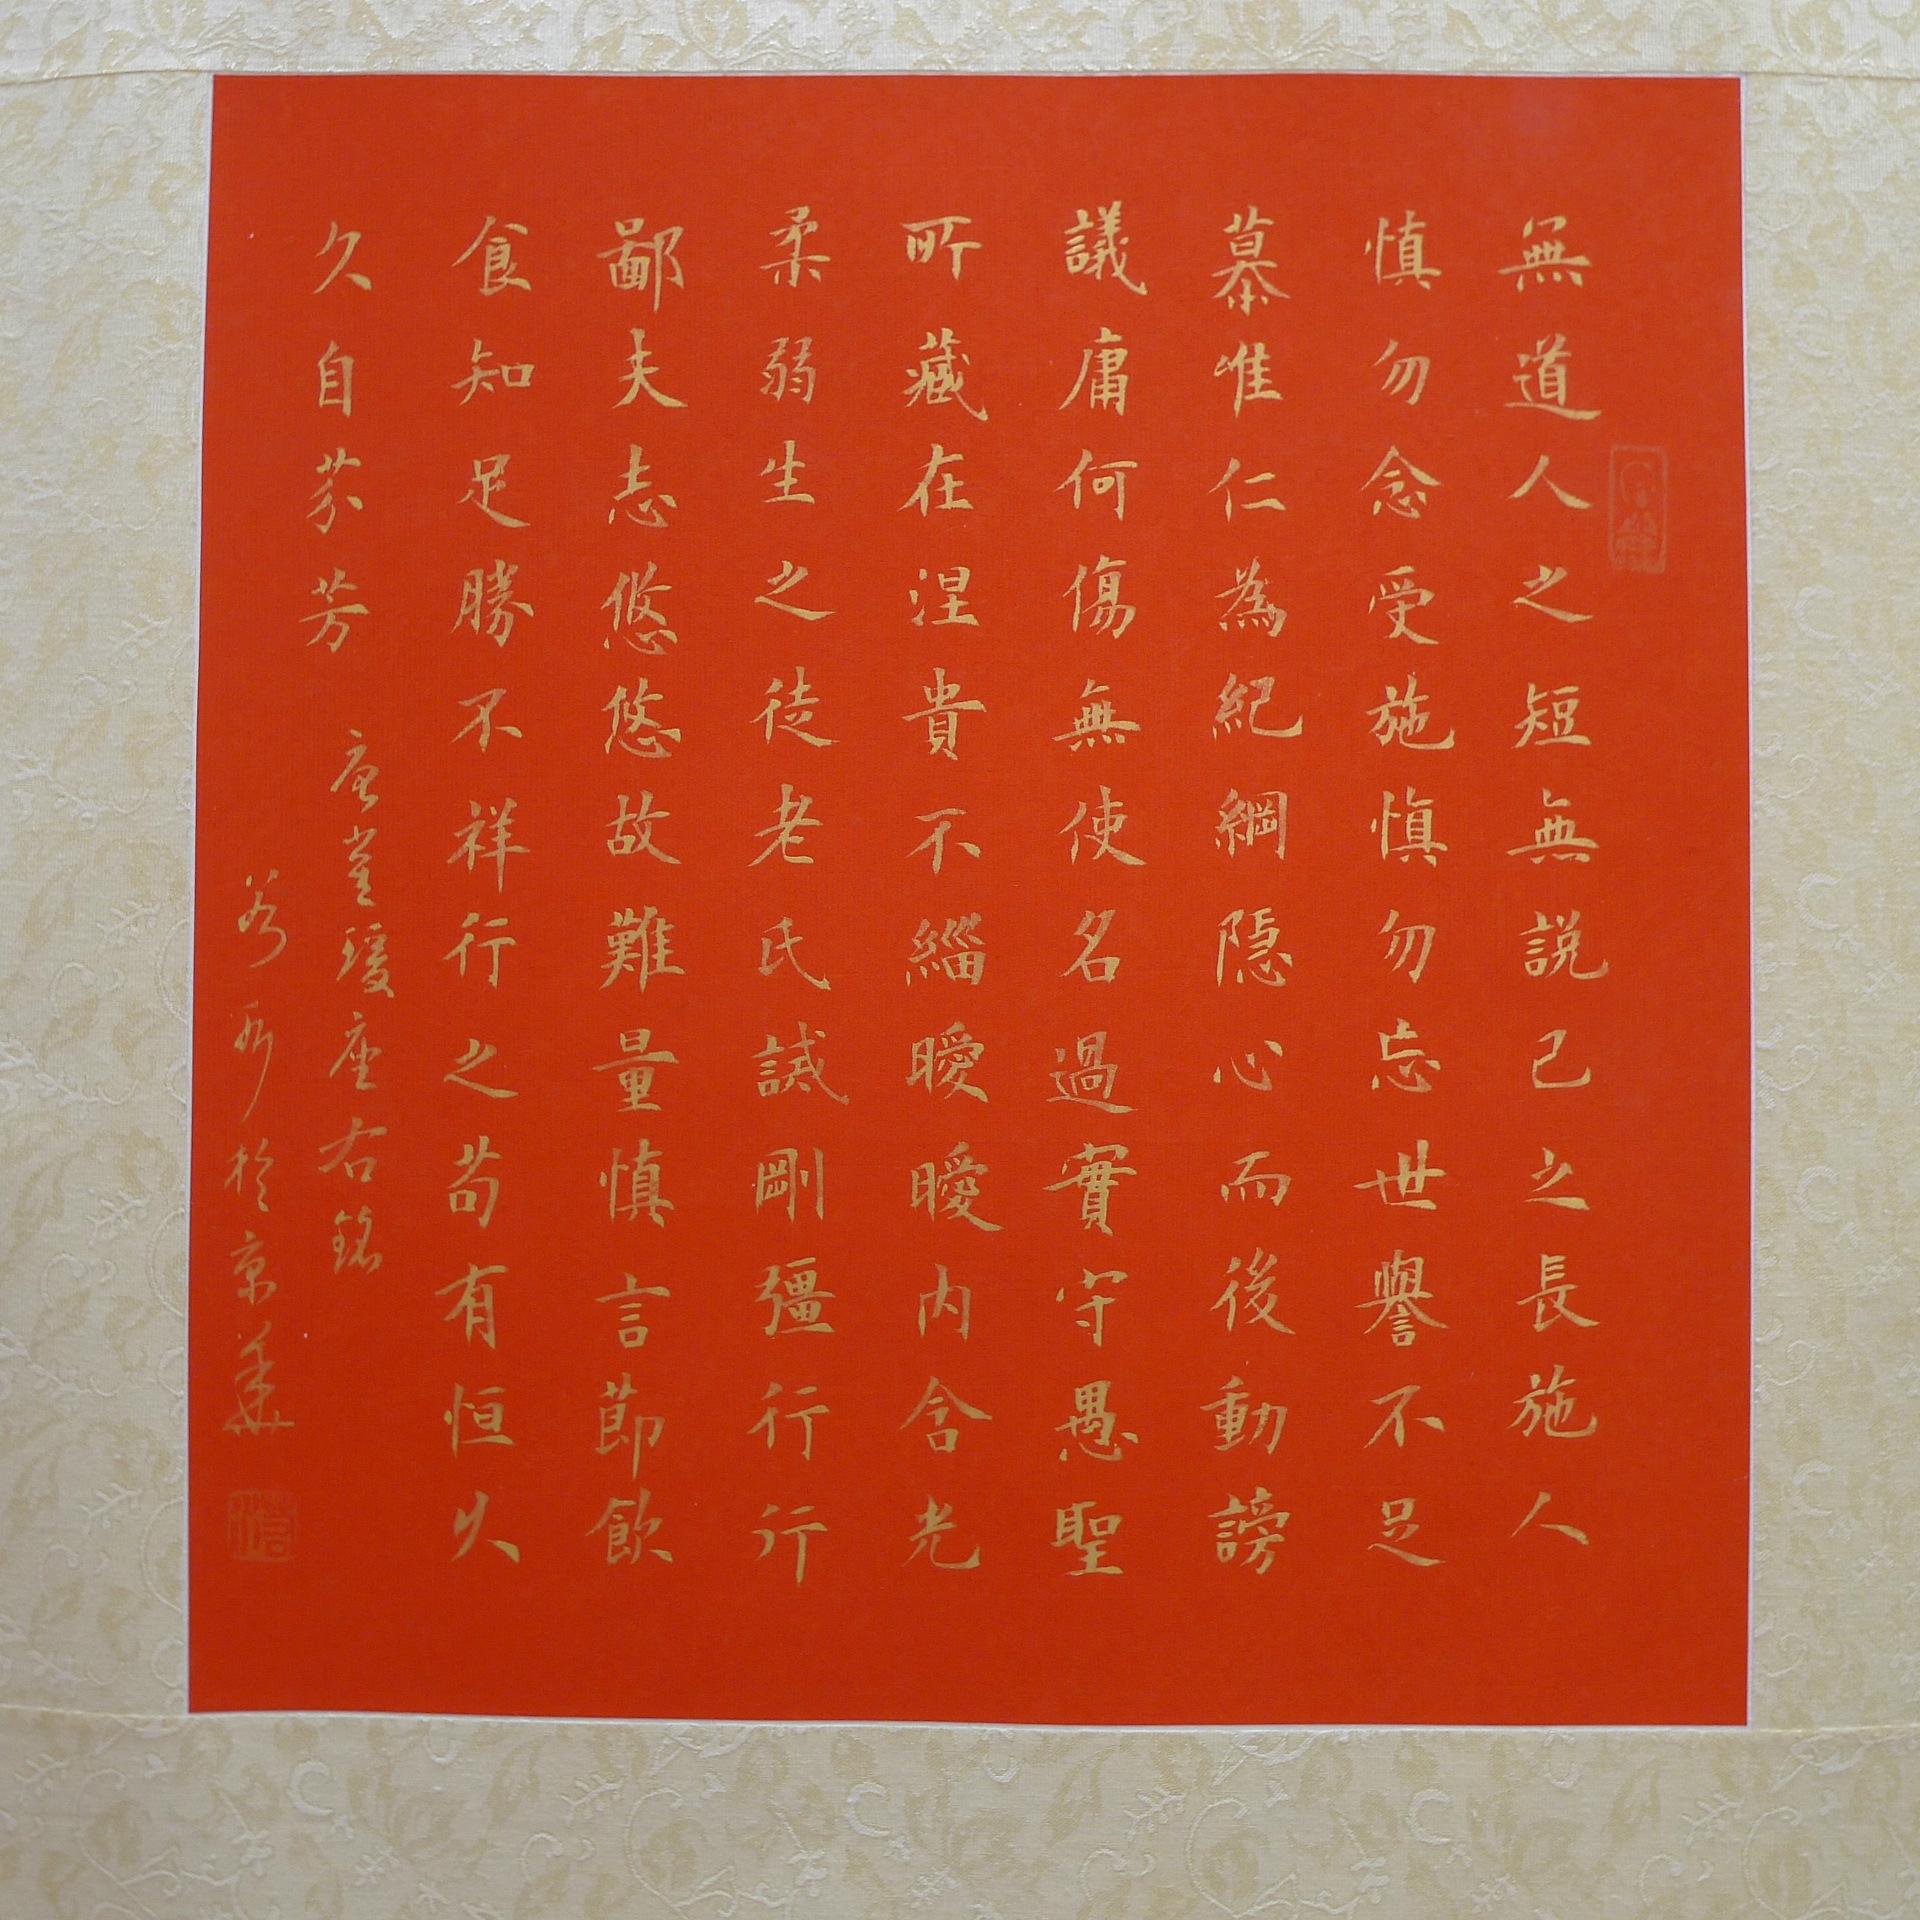 無道人之短無説己之長施人
慎勿念受施慎勿忘世譽不足
慕唯仁為紀綱隐心而後動謗
議庸何傷無使名過實守愚聖
所藏在涅貴不緇曖曖内含光
柔弱生之徒老氏誡剛彊行行
鄙夫志悠悠故難量慎言節飲
食知足勝不祥行之苟有恒久
久自芬芳
唐崔瑗座右銘
於京華